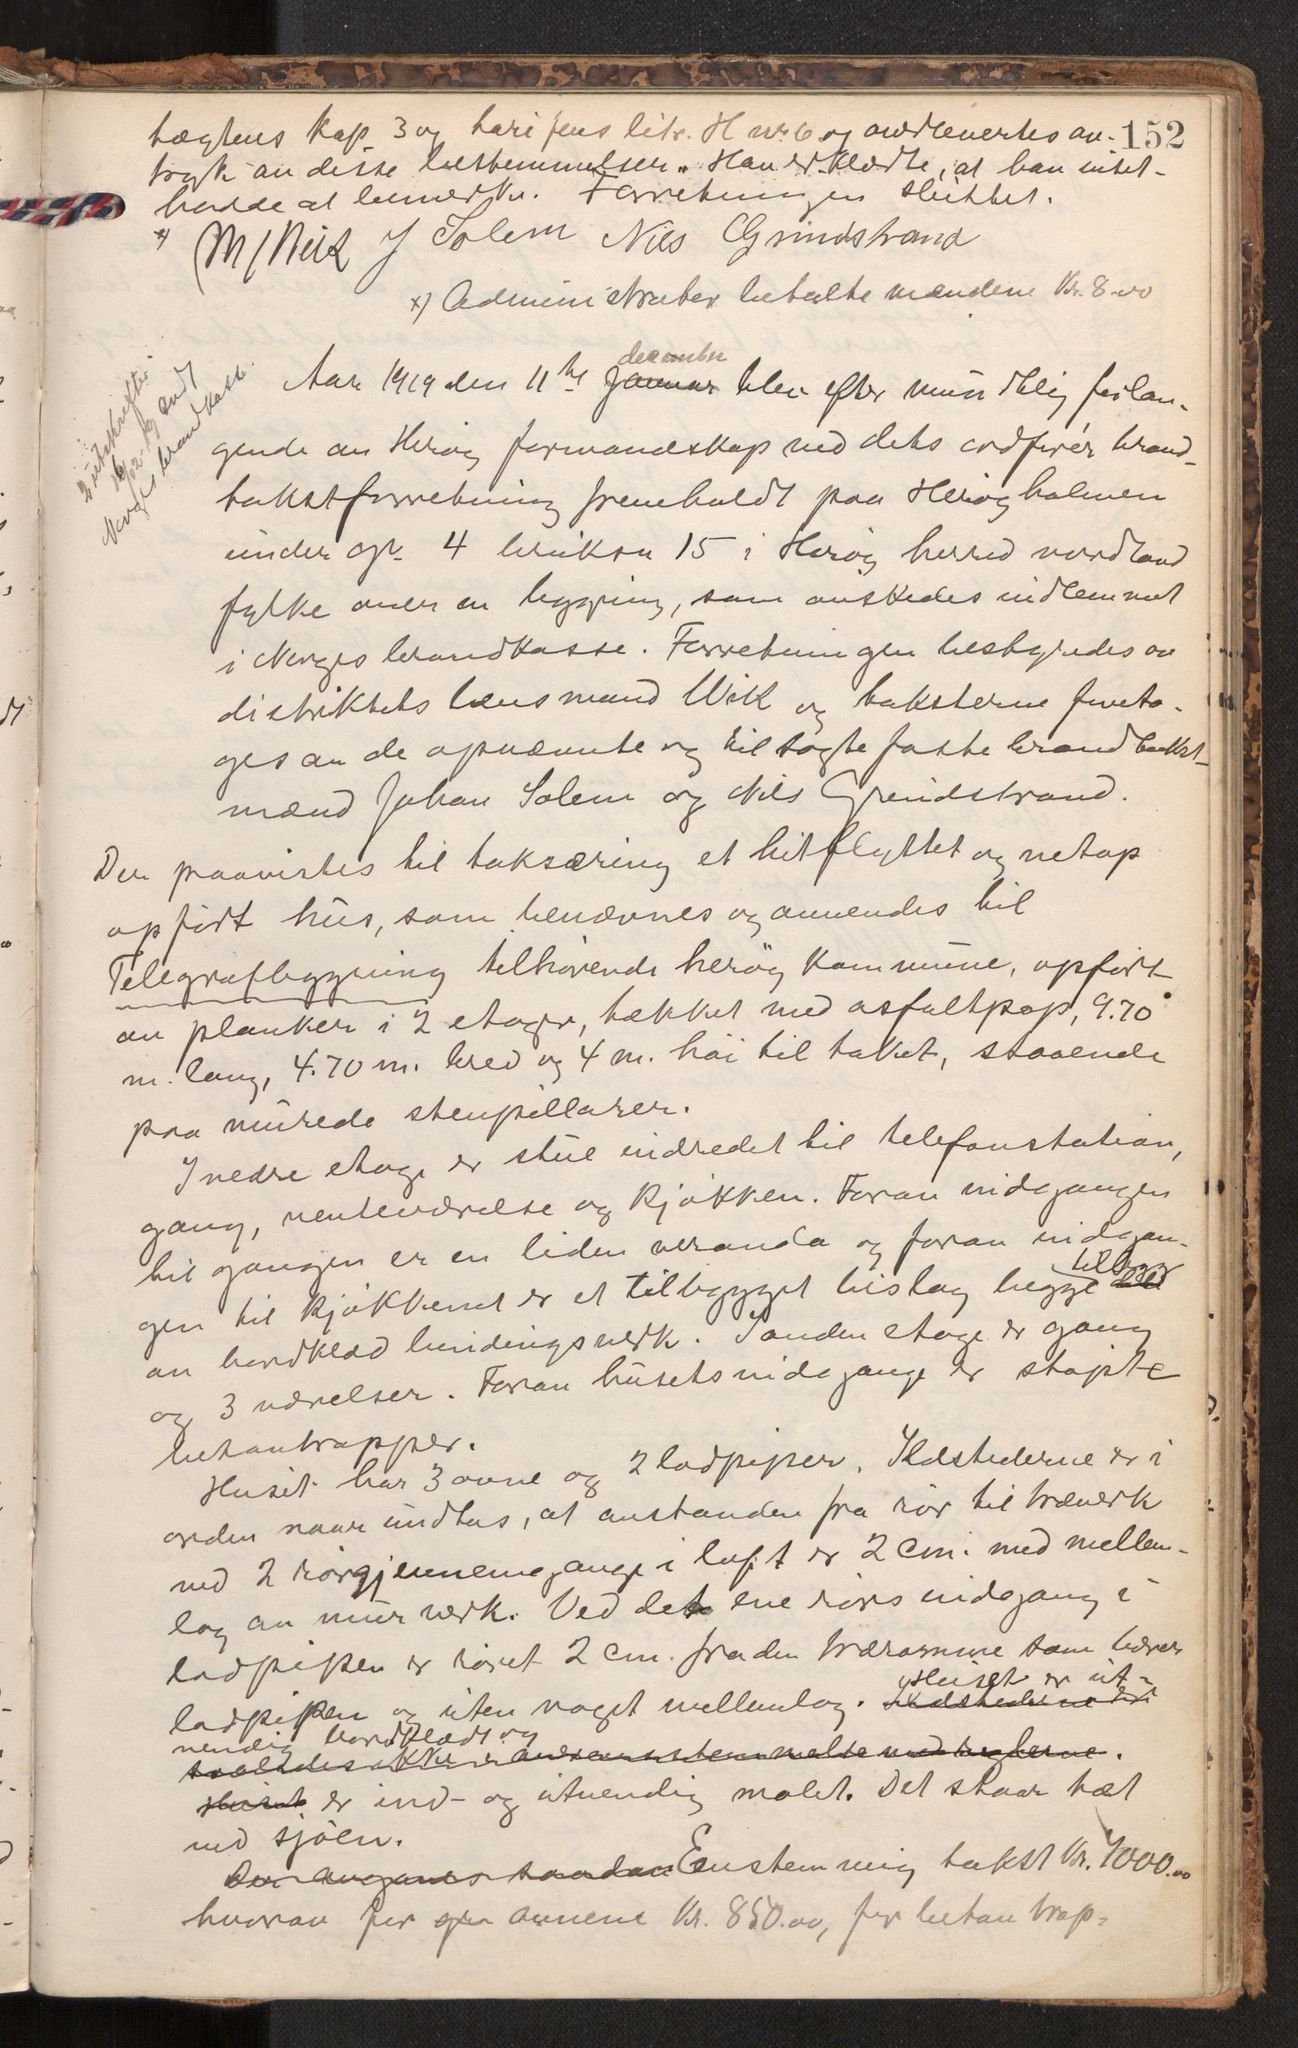 152
tægtens kap 3 og tarifens litr. H nr. 6 og overlevertes av-
tryk av disse bestemmelser. Han erklærte, at han intet
hadde at bemerke. Forretningen sluttet.
x) M/Wik J Solem Nils Grindstrand
x) Administrator betalte mændene Kr. 8.00
2 utskrifter
16/12-19 sendt
Norges brandkasse.
december
Aar 1919 den 11te Januar blev efter mundtlig forlan-
gende av Herøy formandskap ved dets ordfører brand-
takstforretning fremholdt paa Herøyholmen
under gr. 4 bruksn 15 i Herøy herred nordland
fylke over en bygning, som ønskedes indlemmet
i Norges brandkasse. Forretningen bestyredes av
distriktets lensmand Wik og taksterne foreto-
ges av de opnævnte og tiltagte faste brandtakst-
mænd Johan Solem og Nils Grindstrand.
Der paavistes til taksering et hitflyttet og netop
opført hus, som benævnes og anvendes til
Telegrafbygning tilhørende herøy kommune, opført
av planker i 2 etager, tækket med asfaltpap, 9.70
m. lang, 4.70 m. bred og 4 m. høi til taket, staaende
paa murede stenpillarer.
I nedre etage er stue indredet til telefonstation,
gang, venteværelse og kjøkken. Foran indgangen
til gangen er en liden veranda og foran indgan-
tilbygg
gen til kjøkkenet er et tilbygget bislag begge
av bordklæd bindingsverk. I anden etage er gang
og 3 værelser. Foran husets indgange er støpte
betontrapper.
Huset har 3 ovne og 2 lodpiper. Ildstederne er i
orden naar undtas, at avstanden fra rør til træverk
ved 2 rørgjennemgange i loft er 2 cm. med mellem-
lag av murverk. Ved det ene rørs indgang i
lodpipen er røret 2 cm. fra den træramme som bærer
Huset er ut-
lodpipen og uten noget mellemlag. Ildstederne er
vendig bordklædt og
saaledes ikke i overensstemmelse med reglerne.
Huset er ind- og utvendig malet. Det staar tæt
ved sjøen.
Der avgaves saadan Eenstemmig takst Kr. 7000.00
hvorav for ovnene Kr. 850.00, for betontrap-